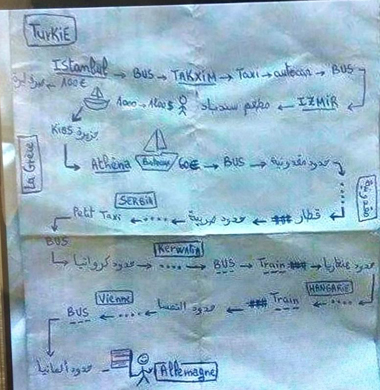 TurKiE
Istanbul → BUS → TAKXIM → Taxi → autocar → BUS
100€
1000 → 1200$ مطعم سندباد ← IZMIR
جزيرة KiOS
La Grèce
Athéna Bateau 60€ → BUS → حدود مقدونية
SERBIA
مقدونية
Petit Taxi ← .... ← حدود صربية ← ### قطار ←
BUS
KerwaTia
حدود كرواتيا → .... → BUS → Train ### → حدود هنغاريا
Vienne HANGARIE
BUS ← .... ← حدود النمسا ← ### Train ← ....
حدود ألمانيا Allemagne